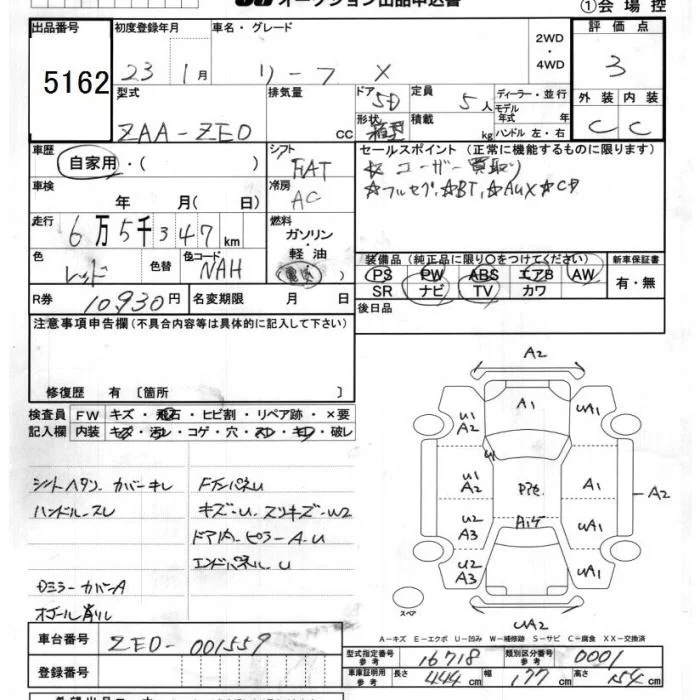 オークション出品申込書
①会場控
出品番号
初度登録年月
車名・グレード
評価点
5162
23年 1月
リーフ X
2WD
・
4WD
3
型式
排気量
ドア
5D
定員
5人
ディーラー・並行
モデル年式 年
外装 内装
ZAA-ZE0
cc
形状
箱型
積載
kg
ハンドル 左・右
C C
車歴
自家用・( )
シフト
FAT
セールスポイント (正常に機能するものに限ります)
☆ユーザー買取り
☆フルセグ、☆BT、☆AUX☆CP
車検
年 月( 日)
冷房
AC
走行
6万5千347km
燃料
ガソリン
・
軽油
(電気)
色
レッド
色替
色コード
NAH
装備品 (純正品に限り○をつけてください)
新車保証書
PS PW ABS エアB AW
SR ナビ TV カワ
有・無
R券
10930円
名変期限 月 日
後日品
注意事項申告欄(不具合内容等は具体的に記入して下さい)
修復歴 有〔箇所 〕
検査員 FW キズ・飛石・ヒビ割・リペア跡・×要
記入欄 内装 キズ・汚レ・コゲ・穴・スレ・キレ・破レ
シートヘタリ カバーキレ
ハンドルスレ
Dミラーカバー A
オール削り
FバンパネU
キズ-U、スリキズ-W2
ドア内ピラーA・U
エンドパネルU
A2
A1
U1
A2
UA1
U1
U1
A2
A1
A2
U2
A3
UA1
U2
A3
UA1
UA2
スペア
A-キズ E-エクボ U-凹み W-補修跡 S-サビ C-腐食 XX-交換済
車台番号
ZE0-001559
登録番号
型式指定番号
参考
16718
類別区分番号
参考
0001
車庫証明用
参考
長さ 444cm 幅 177cm 高さ 154cm